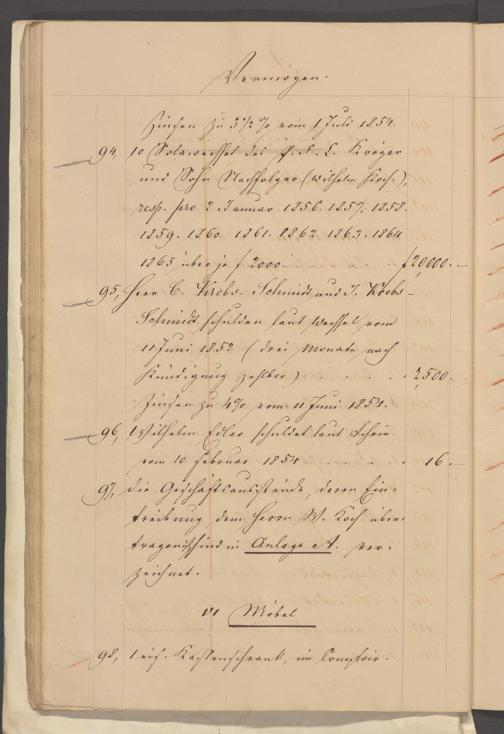 Vermögen.
Zinsen zu 3 1/2 % vom 1 Juli 1854.
94, 10 Solawechsel des J. F. L. Kröger
und Sohn Nachfolger (Wilhelm Koch),
resp. pro 2 Januar 1856. 1857. 1858.
1859. 1860. 1861. 1862. 1863. 1864
1865 über je f 2000. f 20,000.-
95, Herr C. Krebs-Schmidt und J. Krebs-
Schmidt schulden laut Wechsel vom
11 Juni 1852 (drei Monate nach
Kündigung zahlbar) . . . 2,500.-
Zinsen zu 4% vom 11 Juni 1854.
96, Wilhelm Edler schuldet laut Schein
vom 10 Februar 1854 . . 16.-
97, die Geschäftsausstände, deren Ein-
treibung dem Herrn W. Koch über-
tragen ist, sind in Anlage A. ver-
zeichnet.
VI Möbel
98, 1 eis. Kassenschrank, im Comptoir.